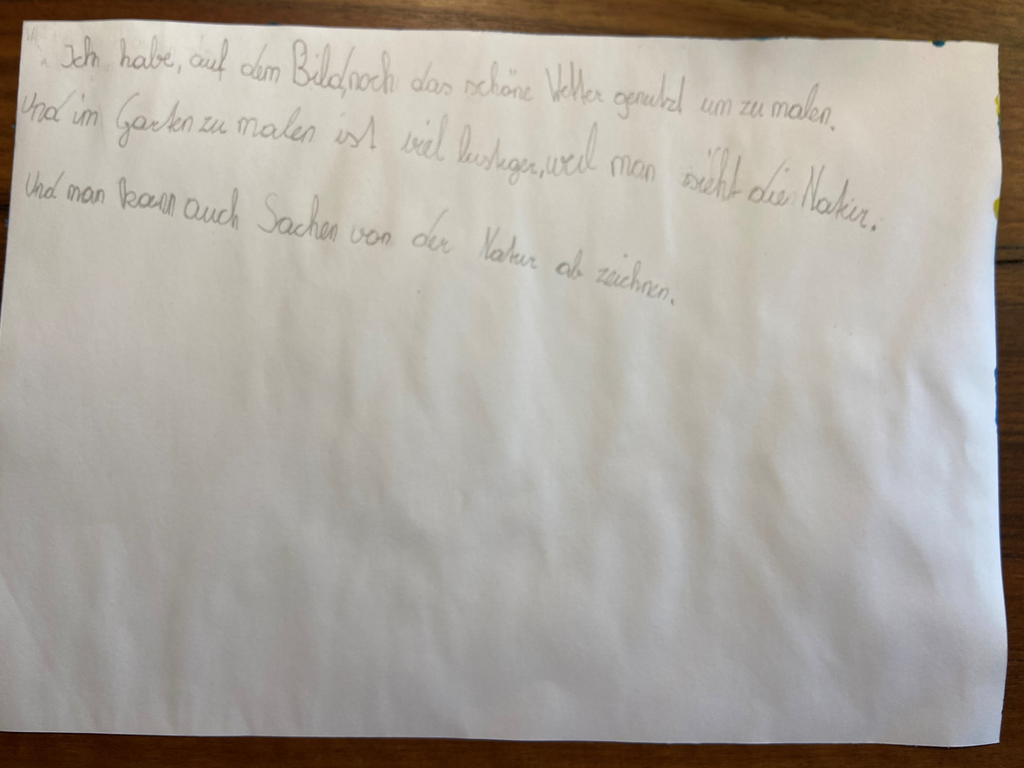 Ich habe, auf dem Bild, noch das schöne Wetter genutzt um zu malen.
Und im Garten zu malen ist viel lusteger, weil man sieht die Natur.
Und man kann auch Sachen von der Natur ab zeichnen.